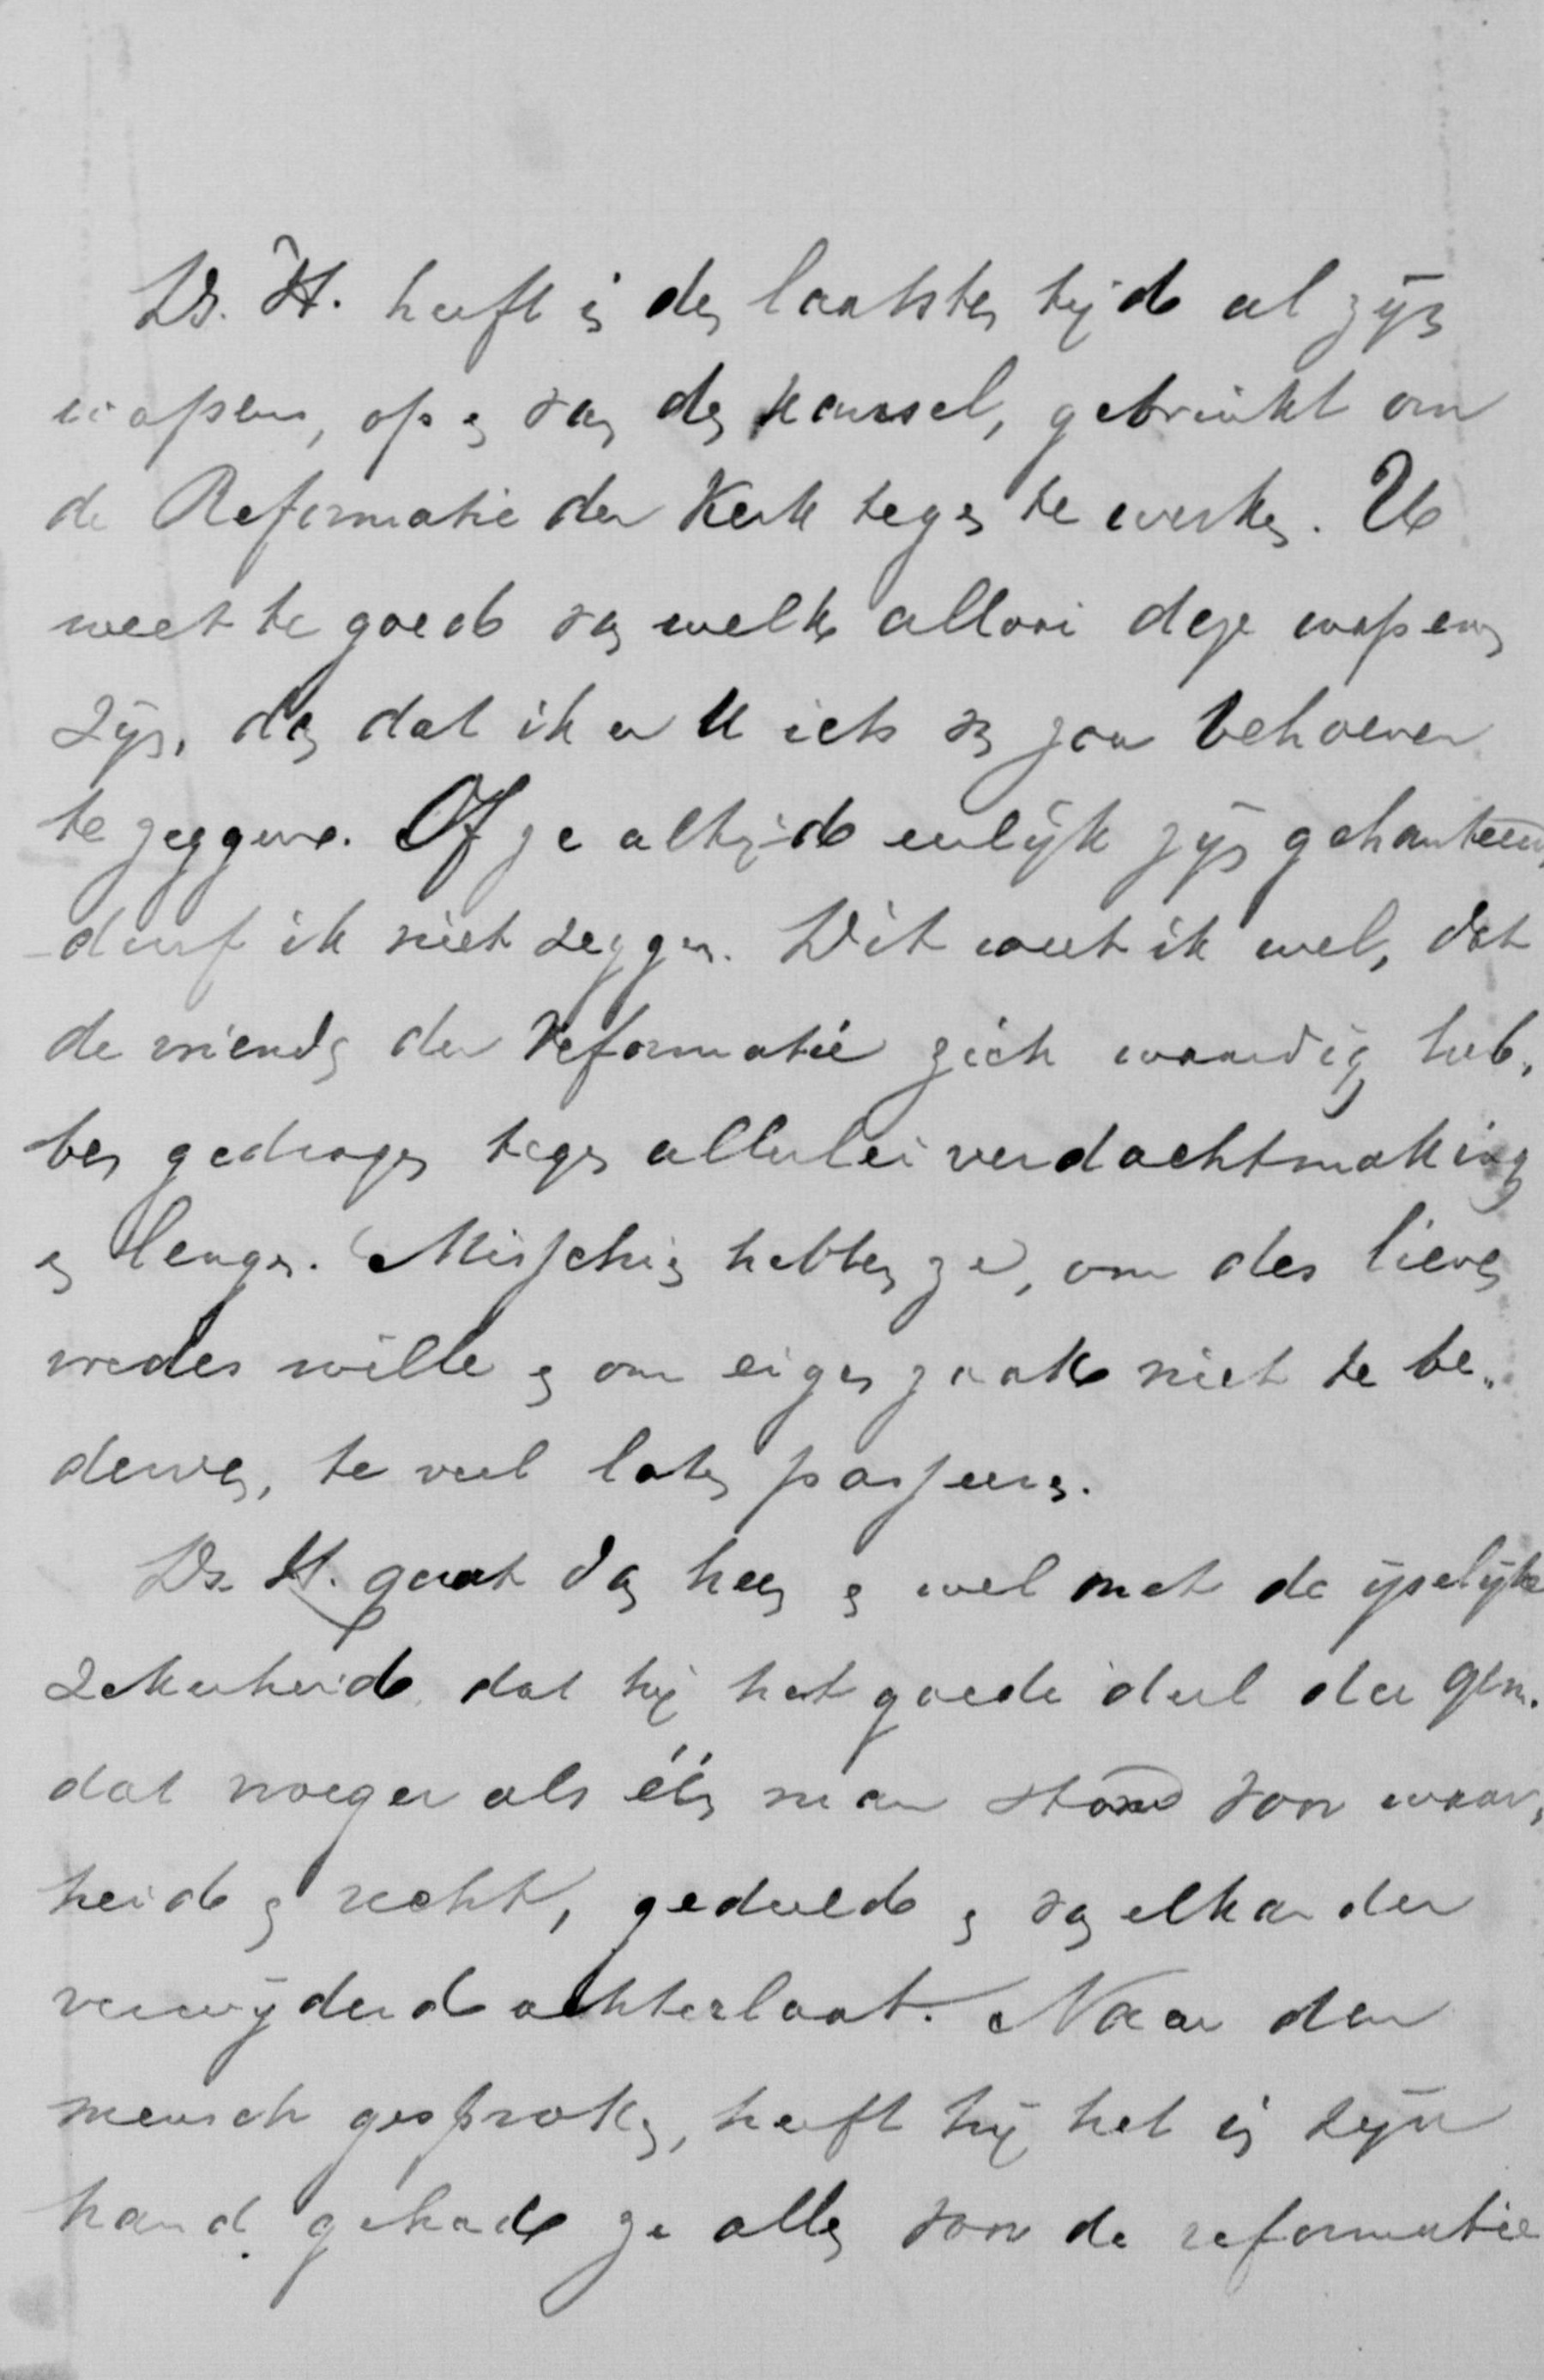 Ds. H. heeft in den laatsten tijd al zijn
wapens, op en van den kansel, gebruikt om
de Reformatie der Kerk tegen te werken. U
weet te goed van welk allooi deze wapens
zijn, dan dat ik er U iets van zou behoeven
te zeggen. Of ze altijd eerlijk zijn gehanteerd,
durf ik niet zeggen. Dit weet ik wel, dat
de vrienden der Reformatie zich waardig heb-
ben gedragen tegen allerlei verdachtmaking
en leugen. Misschien hebben ze, om des lieven
vredes wille en om eigen zaak niet te be-
derven, te veel laten passeeren.
Ds. H. gaat dan heen en wel met de ijselijke
zekerheid dat hij het goede deel der gem.
dat vroeger als één man stond voor waar-
heid en recht, gedeeld en van elkander
verwijderd achterlaat. Naar den
mensch gesproken, heeft hij het in zijn
hand gehad ze allen voor de reformatie